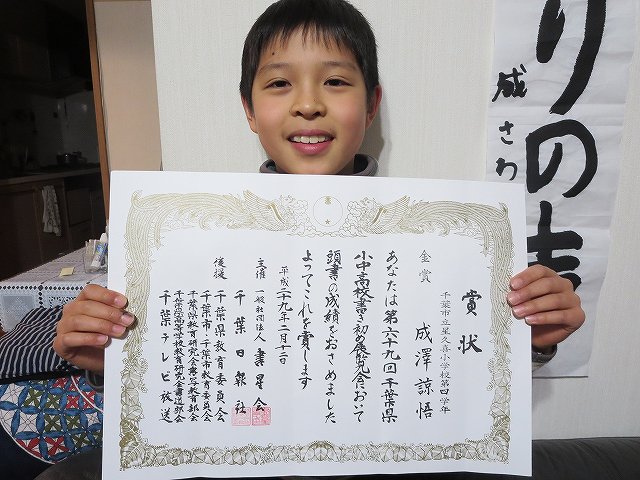 賞状
千葉市立星久喜小学校第四学年
成澤諒悟
金賞
あなたは第六十九回千葉県
小中高校書き初め展覧会において
頭書の成績をおさめました
よってこれを賞します
平成二十九年二月十二日
主催 一般社団法人 書星会
千葉日報社
後援 千葉県教育委員会
千葉市・千葉市教育委員会
千葉県教育研究会書写教育部会
千葉県高等学校教育研究会書道部会
千葉テレビ放送
りの
成さわ